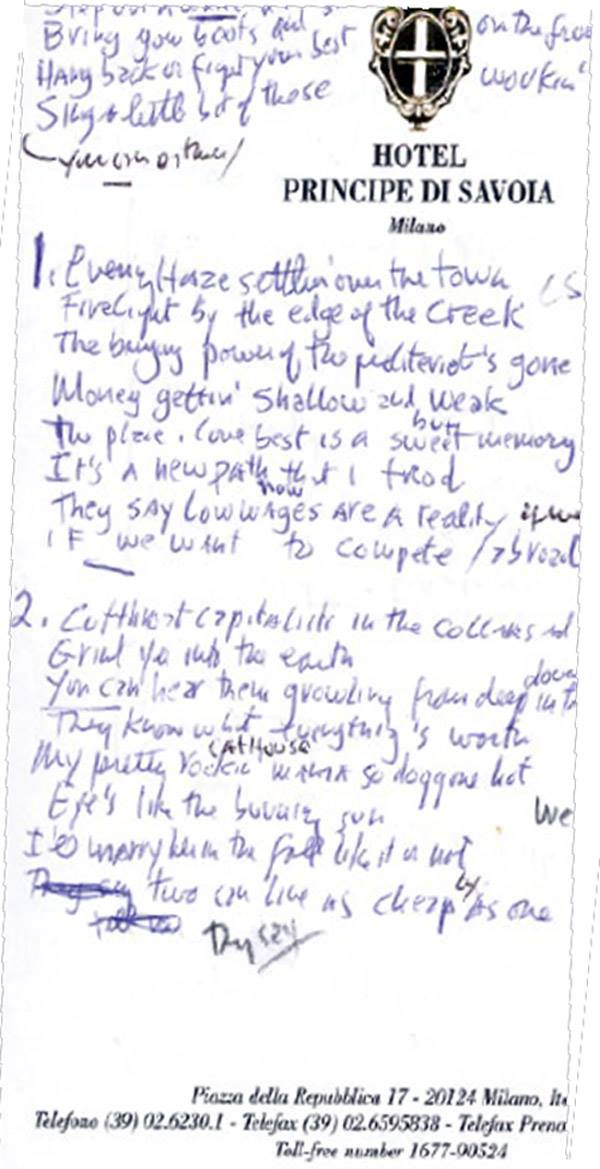 Bring your boots and on the fron
Hang back or fight your best workin'
Sing a little bit of those
you can or they
HOTEL
PRINCIPE DI SAVOIA
Milano
1. Evening Haze settlin' over the town
Firelight by the edge of the Creek
The buying power of the proliteriot's gone
Money gettin' shallow and weak
The place I love best is a sweet memory
but
It's a new path that I trod
now
They say low wages are a reality if we
IF we want to compete / abroad
2. Cutthroat capitalists in the
Grind ya into the earth
You can hear them growling from deep in th
down
They know what everything's worth
CATHOUSE
My pretty rockin' mama so doggone hot
Eye's like the burning sun
We
I'd marry her in the fall like it or not
They say two can live as cheap as one
by
They say
Piazza della Repubblica 17 - 20124 Milano, Ita
Telefono (39) 02.6230.1 - Telefax (39) 02.6595838 - Telefax Preno
Toll-free number 1677-90524